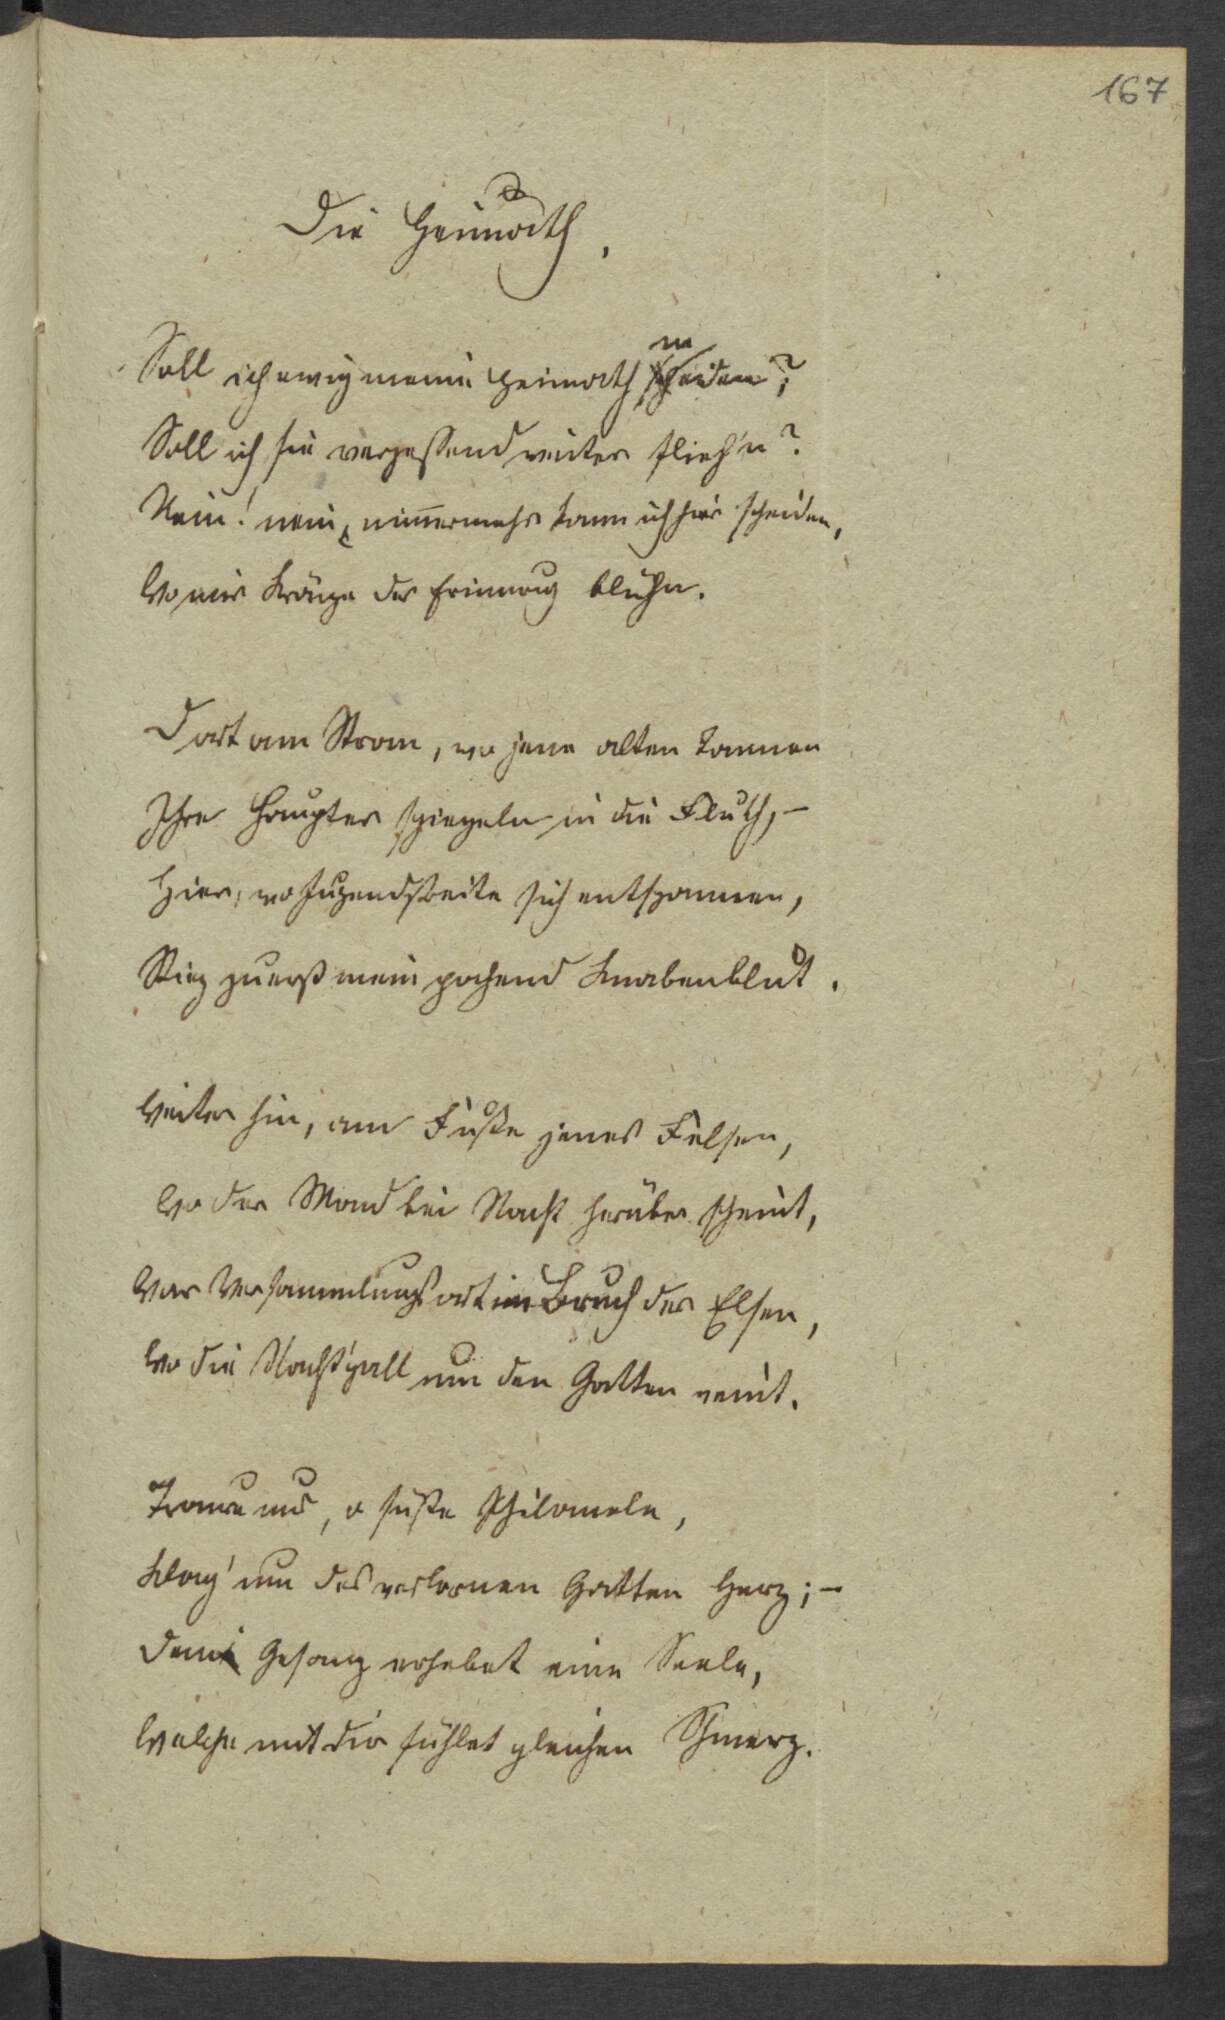 167
Die Heimath,
Soll ich ewig meine Heimath meiden?
Soll ich sie vergessend weiter flieh'n?
Nein! nein, nim̅ermehr kann ich hier scheiden,
Wo mir Kränze der Erinnrug blühn.
Dort am Strom, wo jene alten Tannen
Ihre Haupter spiegeln in die Fluth, -
Hier, wo Jugendstreite sich entspannen,
Stieg zuerst mein pochend Knabenblut.
Weiter hin, am Fuße jenes Felsen,
Wo der Mond bei Nacht herüber scheint,
War Versammlungsort im Bruch der Elsen,
Wo die Nacht'gall um den Gatten weint.
Traure nur, o süße Philomele,
Klag' um des verlornen Gatten Herz; -
Dein Gesang erhebet eine Seele,
Welche mit dir fühlet gleichen Schmerz.